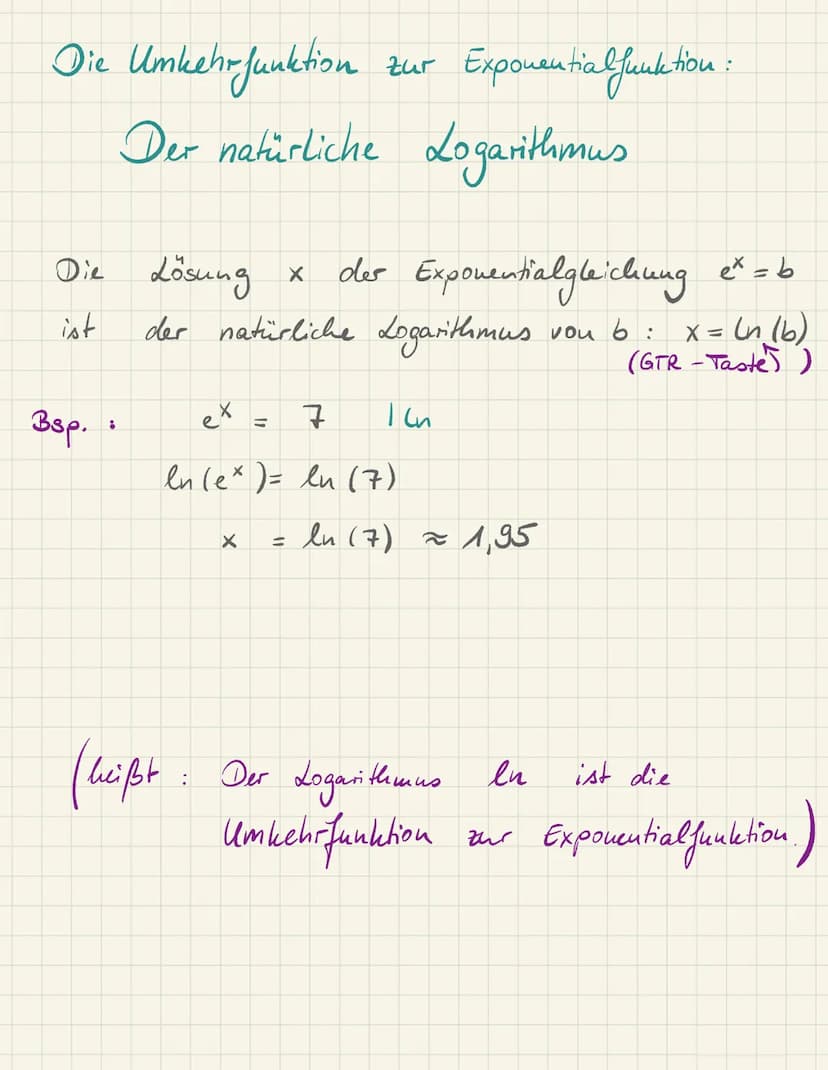 Die Umkehrfunktion zur Exponentialfunktion:
Der natürliche Logarithmus
Die Lösung x der Exponentialgleichung eˣ = b
ist der natürliche Logarithmus von b : x = ln (b)
(GTR - Taste)
Bsp. : eˣ = 7 | ln
ln (eˣ) = ln (7)
x = ln (7) ≈ 1,95
(heißt : Der Logarithmus ln ist die
Umkehrfunktion zur Exponentialfunktion.)